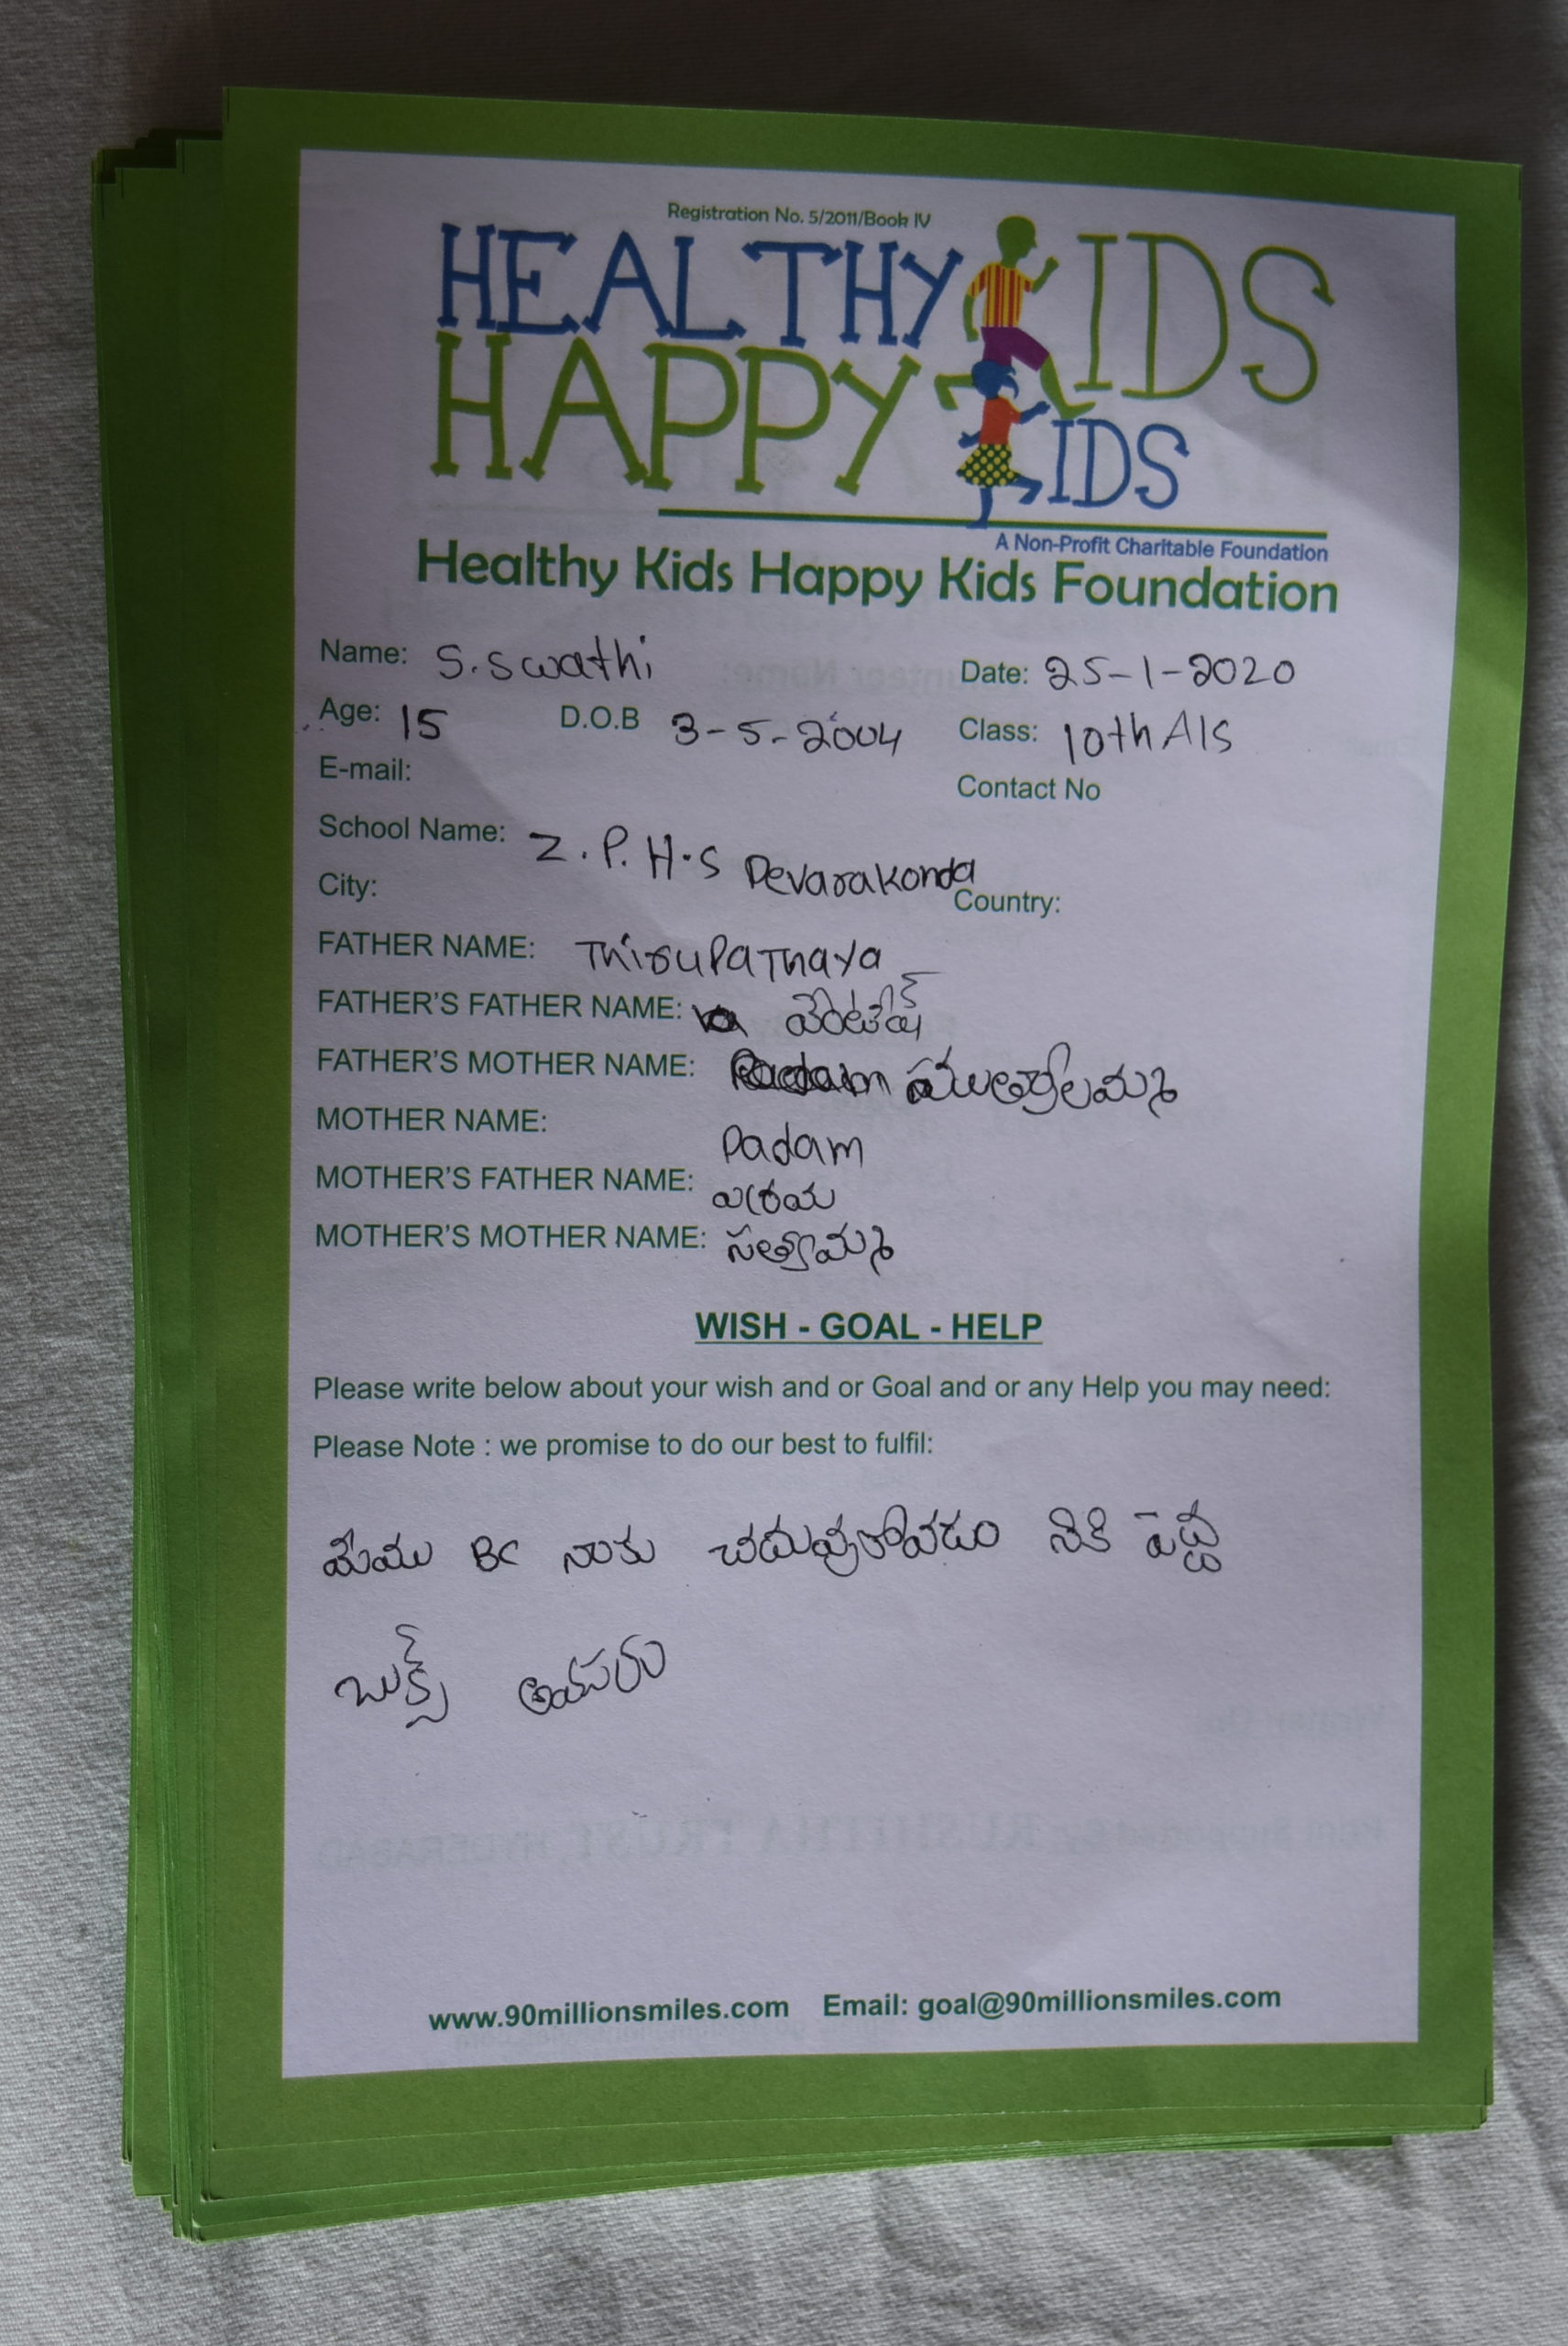 Registration No. 5/2011/Book IV
HEALTHY KIDS
HAPPY KIDS
A Non-Profit Charitable Foundation
Healthy Kids Happy Kids Foundation
Name: S. Swathi Date: 25-1-2020
Age: 15 D.O.B 3-5-2004 Class: 10th A/s
E-mail: Contact No
School Name: Z.P.H.S Devarakonda
City: Country:
FATHER NAME: Thirupathaya
FATHER'S FATHER NAME: వెంటేష్
FATHER'S MOTHER NAME: ముత్యాలమ్మ
MOTHER NAME: Padam
MOTHER'S FATHER NAME:
MOTHER'S MOTHER NAME: సత్యామ్మ
WISH - GOAL - HELP
Please write below about your wish and or Goal and or any Help you may need:
Please Note : we promise to do our best to fulfil:
మేము BC నాకు చదువుకోవడం నికి పెద్ద
బుక్స్
www.90millionsmiles.com Email: goal@90millionsmiles.com